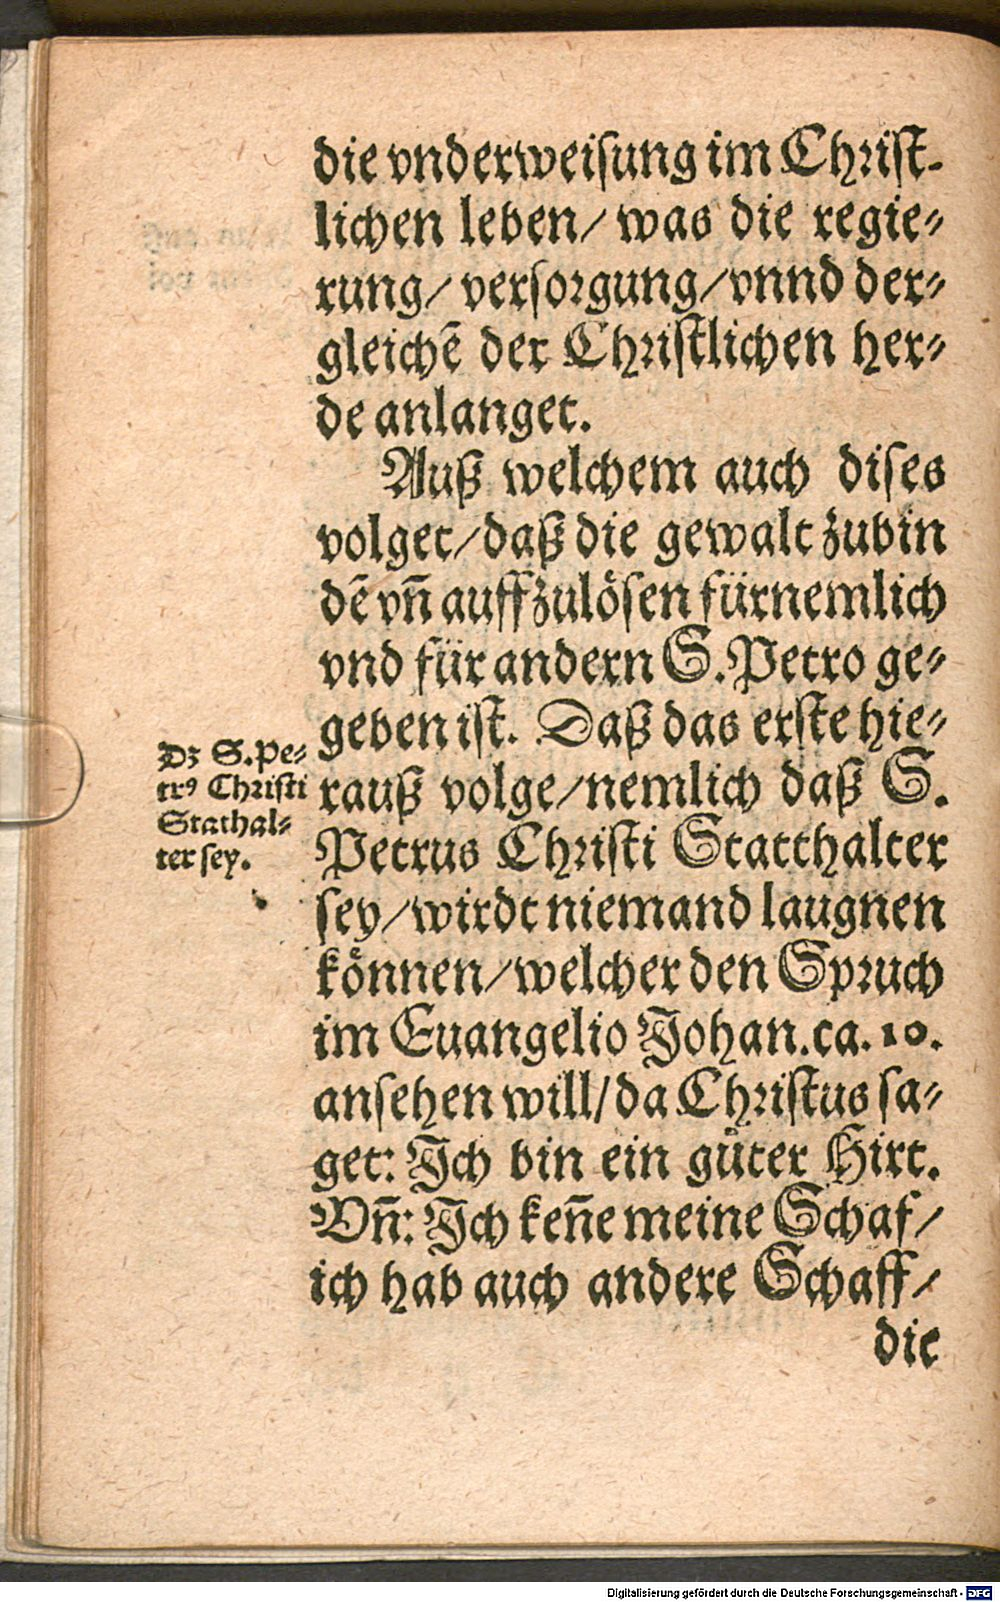 die vnderweisung im Christ-
lichen leben/ was die regie-
rung/ versorgung/ vnnd der-
gleichẽ der Christlichen her-
de anlanget.
Auß welchem auch dises
volget/ daß die gewalt zubin
dẽ vñ auffzulösen fürnemlich
vnd für andern S. Petro ge-
geben ist. Daß das erste hie-
rauß volge/ nemlich daß S.
Petrus Christi Statthalter
sey/ wirdt niemand laugnen
können/ welcher den Spruch
im Euangelio Johan. ca. 10.
ansehen will/ da Christus sa-
get: Ich bin ein gůter Hirt.
Vñ: Ich keñe meine Schaf/
ich hab auch andere Schaff/
die
Dz S. Pe-
trꝰ Christi
Stathal-
ter sey.
Digitalisierung gefördert durch die Deutsche Forschungsgemeinschaft - DFG